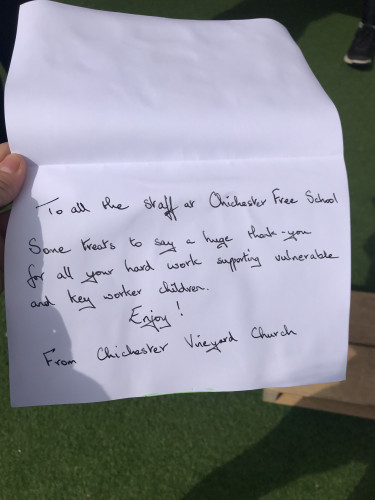 To all the staff at Chichester Free School
Some treats to say a huge thank-you
for all your hard work supporting vulnerable
and key worker children.
Enjoy!
From Chichester Vineyard Church